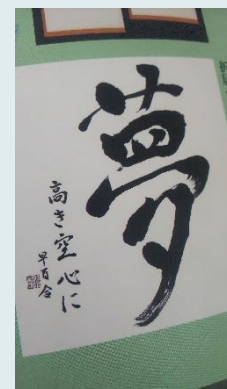 夢
高き空心に
早百合